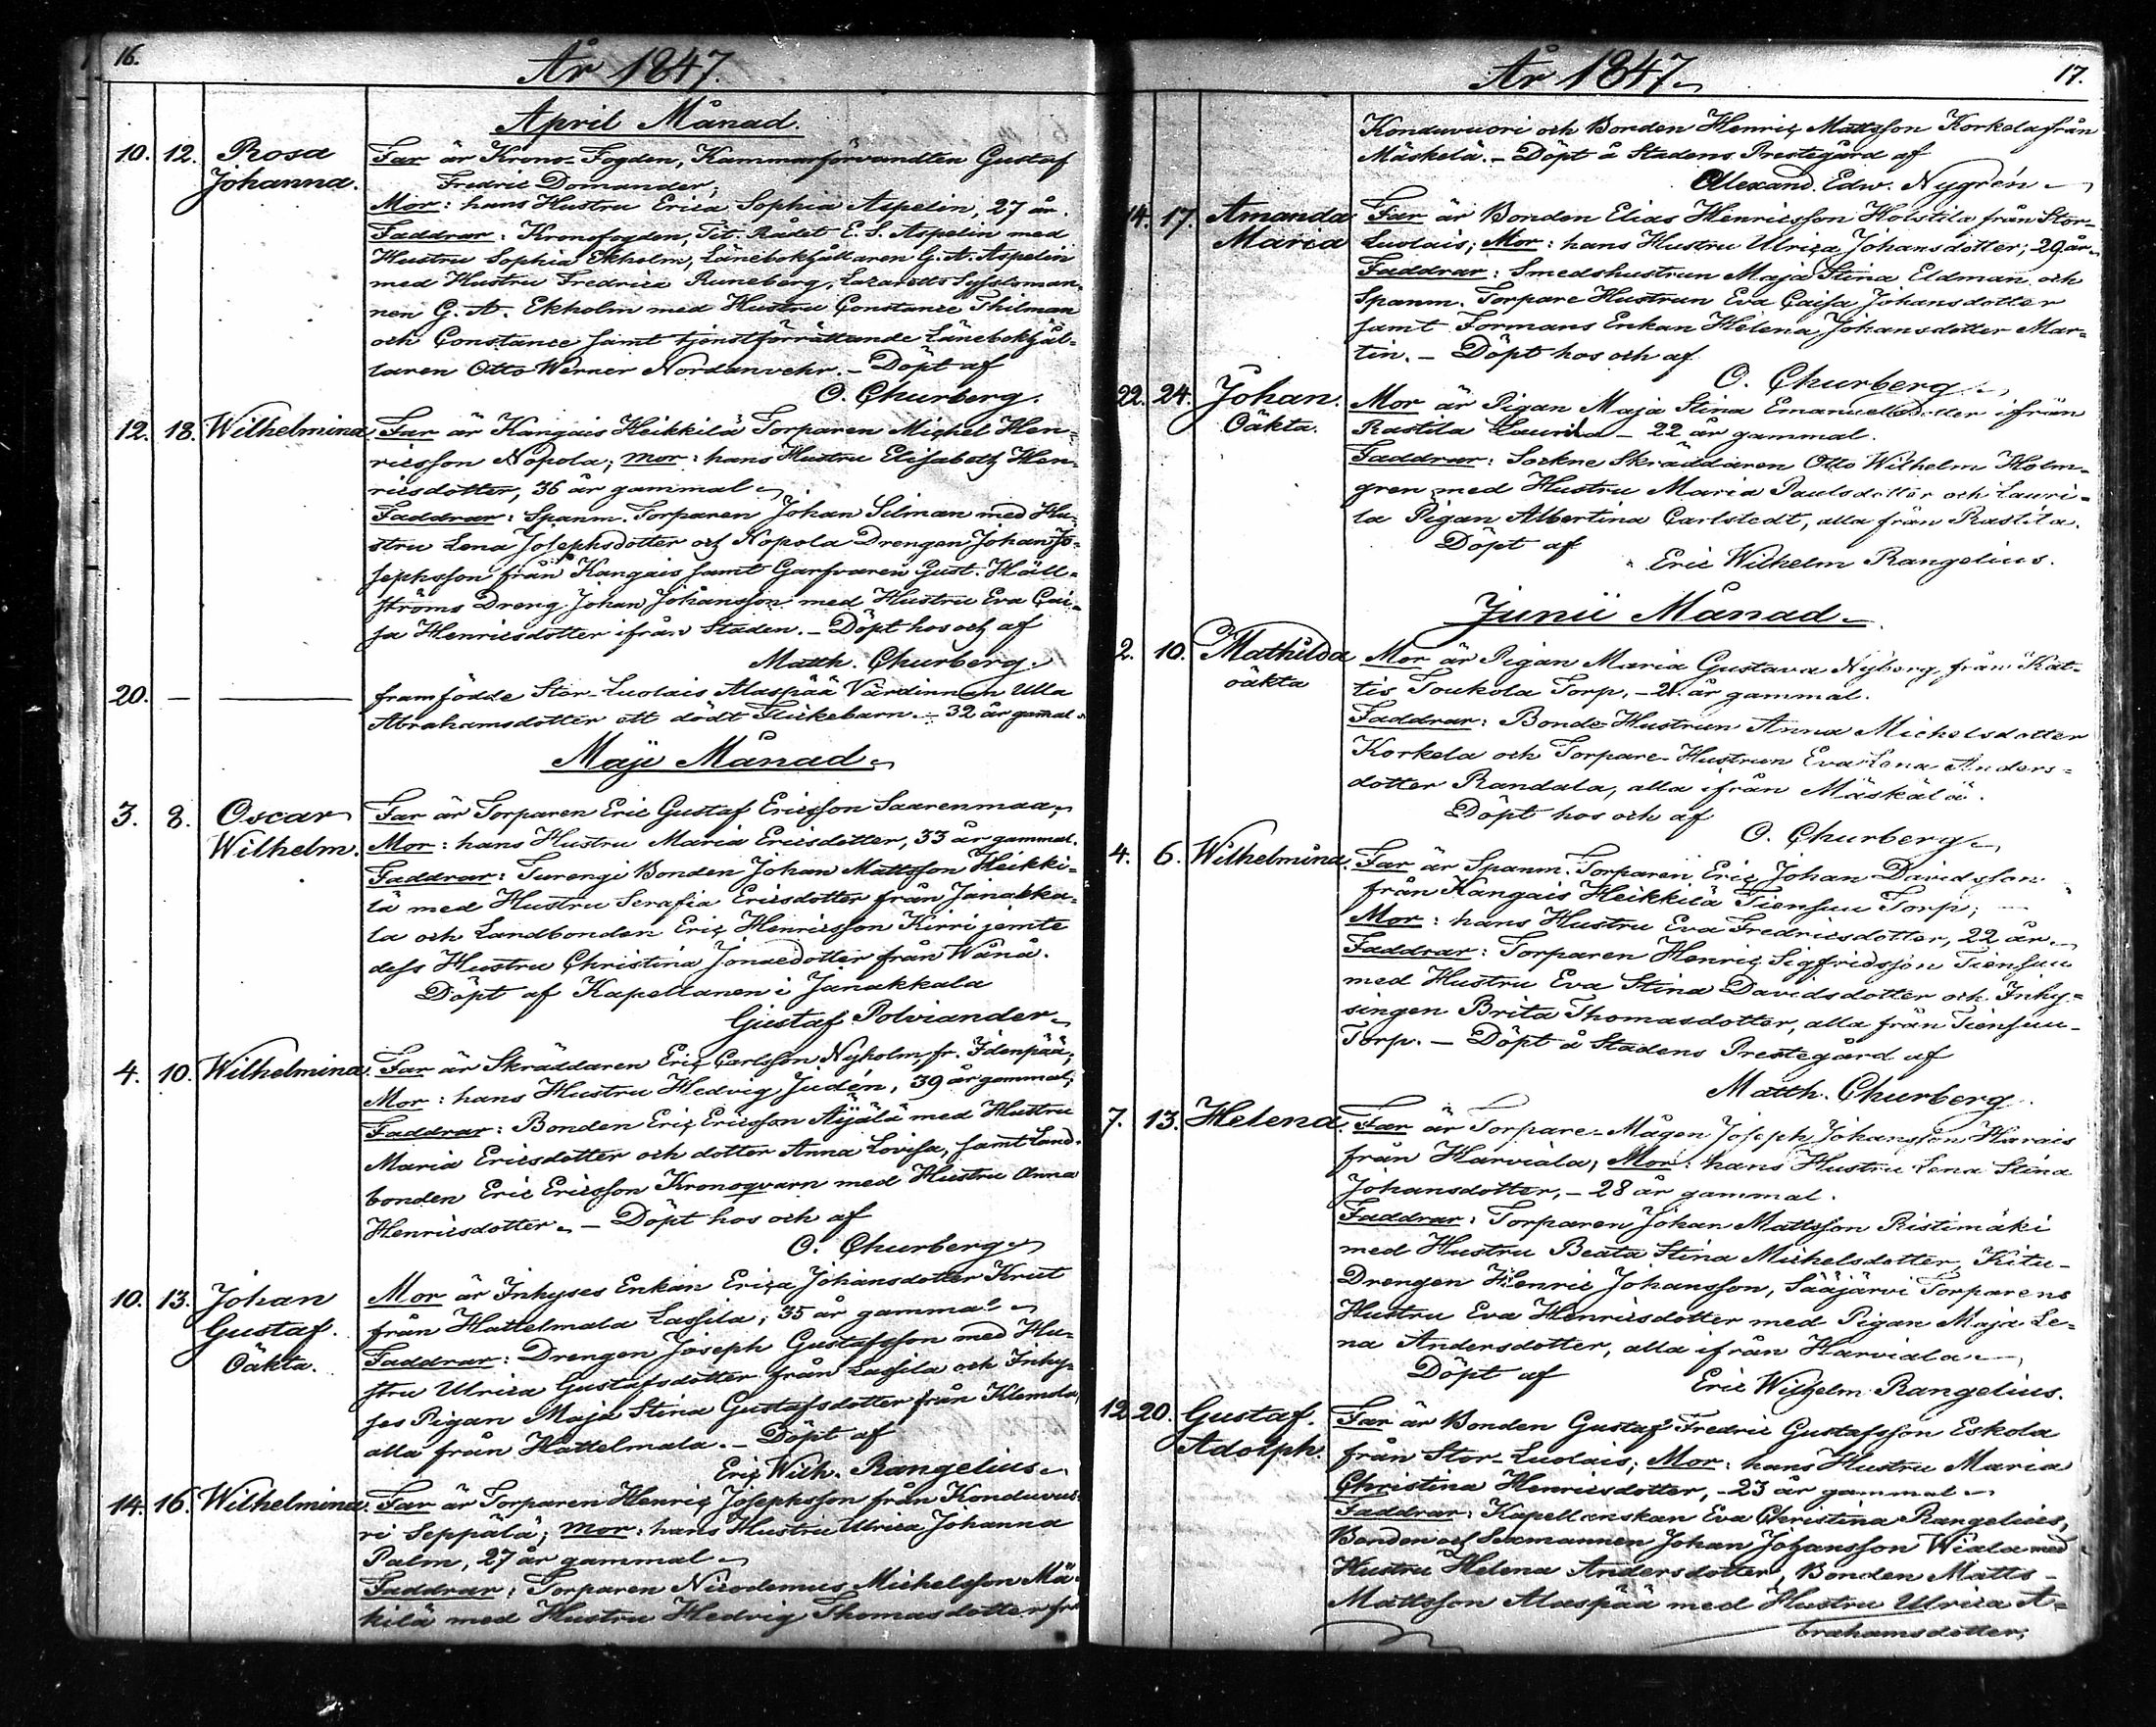 16.
År 1847.
April Månad.
10. 12. Rosa Johanna.
Far är Krono-Fogden, Kammarförvandten Gustaf
Fredric Domander;
Mor: hans Hustru Erica Sophia Aspelin, 27 år.
Faddrar: Kronofogden, Tit. Rådet E. S. Aspelin med
Hustru Sophia Ekholm, Länebokhållaren G. A. Aspelin
med Hustru Fredrica Runeberg, Lazaretts Sysloman-
nen G. A. Ekholm med Hustru Constance Thilman
och Constance samt tjenstförrättande Länebokhål-
laren Otto Werner Nordanvehr. – Döpt af
O. Churberg.
12. 18. Wilhelmina
Far är Kangais Heikkilä Torparen Michel Hen-
ricsson Nopola; Mor: hans Hustru Elisabeth Hen-
ricsdotter, 36 år gammal
Faddrar: Spanm. Torparen Johan Silman med Hu-
stru Lena Josephsdotter och Nopola Drengen Johan Jo-
sephsson från Kangais samt Garfvaren Gust. Häll-
ströms Dreng Johan Johansson med Hustru Eva Cai-
sa Henricsdotter ifrån Staden. – Döpt hos och af
Matth. Churberg.
20. — —
framfödde Stor-Luolais Alaspää Värdinnan Ulla
Abrahamsdotter ett dödt Flickebarn. – 32 år gamal.
Maji Månad
3. 8. Oscar Wilhelm.
Far är Torparen Eric Gustaf Ericsson Saarenmaa;
Mor: hans Hustru Maria Ericsdotter, 33 år gammal.
Faddrar: Turengi Bonden Johan Mattsson Heikki-
lä med Hustru Serafia Ericsdotter från Janakka-
la och Landbonden Eric Henricsson Kirri jemte
dess Hustru Christina Jonaedotter från Wånå.
Döpt af Kapellanen i Janakkala
Gustaf Polviander
4. 10. Wilhelmina.
Far är Skräddaren Eric Carlsson Nyholm, fr. Idenpää;
Mor: hans Hustru Hedvig Judén, 39 år gammal;
Faddrar: Bonden Eric Ericsson Äijälä med Hustru
Maria Ericsdotter och dotter Anna Lovisa, samt Land-
bonden Eric Ericsson Kronoqvarn med Hustru Anna
Henricsdotter. – Döpt hos och af
O. Churberg
10. 13. Johan Gustaf. Oäkta.
Mor är Inhyses Enkan Erica Johansdotter Krut
från Hattelmala Lassila; 35 år gammal
Faddrar: Drengen Joseph Gustafsson med Hu-
stru Ulrica Gustafsdotter från Lassila och Inhy-
ses Pigan Maja Stina Gustafsdotter från Klemola,
alla från Hattelmala. – Döpt af
Eric Wilh. Rangelius
14. 16. Wilhelmina.
Far är Torparen Henric Josephsson från Konduvuo-
ri Seppälä; Mor: hans Hustru Ulrica Johanna
Palm, 27 år gammal
Faddrar: Torparen Nicodemus Michelsson Mä-
kilä med Hustru Hedvig Thomasdotter frn
År 1847
17.
Konduvuori och Bonden Henric Mattsson Korkela från
Mäskelä. – Döpt å Stadens Prestegård af
Alexand. Edw. Nygrén
14. 17. Amanda Maria
Far är Bonden Elias Henricsson Holstila från Stor-
Luolais; Mor: hans Hustru Ulrica Johansdotter; 29 år
Faddrar: Smedshustrun Maja Stina Eldman och
Spanm. Torpare Hustrun Eva Caisa Johansdotter
samt Formans Enkan Helena Johansdotter Mar-
tin. – Döpt hos och af
O. Churberg
22. 24. Johan. Oäkta.
Mor är Pigan Maja Stina Emanuelsdotter ifrån
Rastila Laurila – 22 år gammal.
Faddrar: Sockne Skräddaren Otto Wilhelm Holm-
gren med Hustru Maria Paulsdotter och Lauri-
la Pigan Albertina Carlstedt, alla från Rastila.
Döpt af
Eric Wilhelm Rangelius.
Junii Månad
2. 10. Mathilda oäkta
Mor är Pigan Maria Gustava Nyborg, från Kat-
tis Toukola Torp, – 21 år gammal.
Faddrar: Bonde-Hustrun Anna Michelsdotter
Korkela och Torpare-Hustrun Eva Lena Anders-
dotter Randala, alla ifrån Mäskälä.
Döpt hos och af
O. Churberg
4. 6. Wilhelmina.
Far är Spanm. Torparen Eric Johan Davidsson
från Kangais Heikkilä Tiensuu Torp;
Mor: hans Hustru Eva Fredricsdotter, 22 år.
Faddrar: Torparen Henric Sigfridsson Tiensuu
med Hustru Eva Stina Davidsdotter och Inhy-
singen Brita Thomasdotter, alla från Tiensuu-
Torp. – Döpt å Stadens Prestegård af
Matth. Churberg.
7. 13. Helena.
Far är Torpare-Mågen Joseph Johansson Harais
från Harviala; Mor: hans Hustru Lena Stina
Johansdotter, – 28 år gammal.
Faddrar: Torparen Johan Mattsson Ristimäki
med Hustru Beata Stina Michelsdotter, Kitu-
Drengen Henric Johansson, Sääjärvi Torparens
Hustru Eva Henricsdotter med Pigan Maja Le-
na Andersdotter, alla ifrån Harviala
Döpt af
Eric Wilhelm Rangelius.
12 20. Gustaf. Adolph.
Far är Bonden Gustaf Fredric Gustafsson Eskola
från Stor-Luolais; Mor: hans Hustru Maria
Christina Henricsdotter, – 23 år gammal
Faddrar: Kapellanskan Eva Christina Rangelius,
Bonden och Sexmannen Johan Johansson Wiala med
Hustru Helena Andersdotter, Bonden Matts-
Mattsson Alaspää med Hustru Ulrica A-
brahamsdotter;